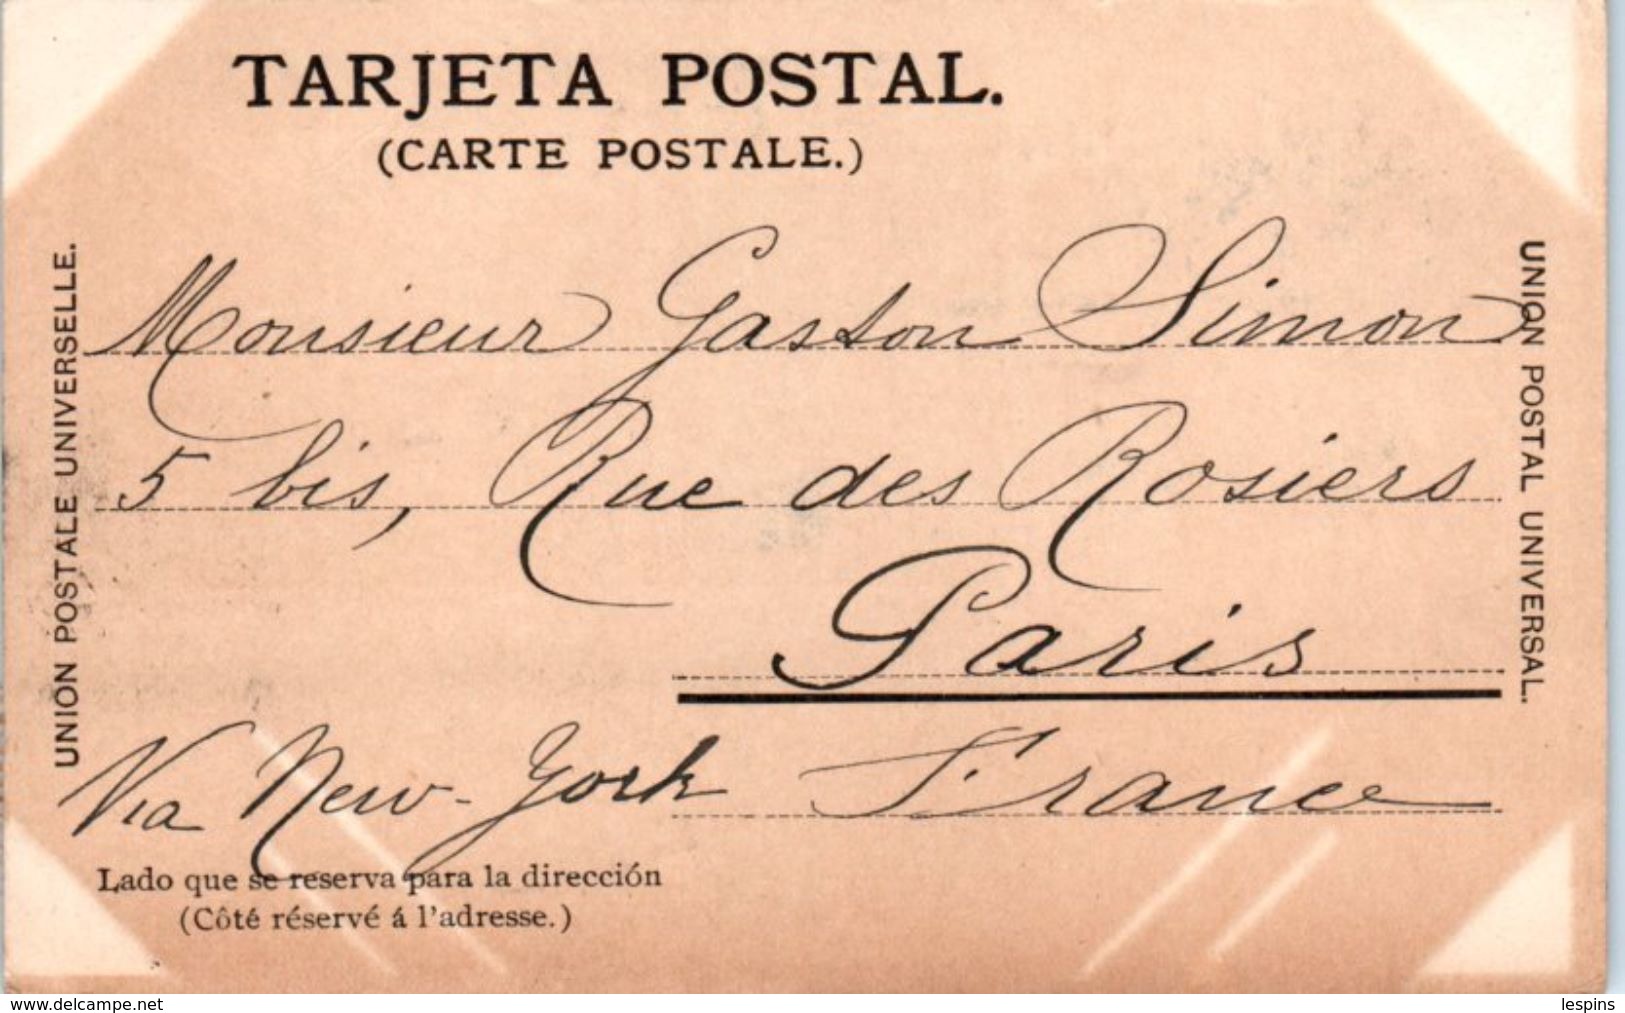 TARJETA POSTAL.
(CARTE POSTALE.)
UNION POSTALE UNIVERSELLE.
UNION POSTAL UNIVERSAL.
Monsieur Gaston Simon
5 bis, Rue des Rosiers
Paris
Via New-York France
Lado que se reserva para la dirección
(Côté réservé á l'adresse.)
www.delcampe.net
lespins